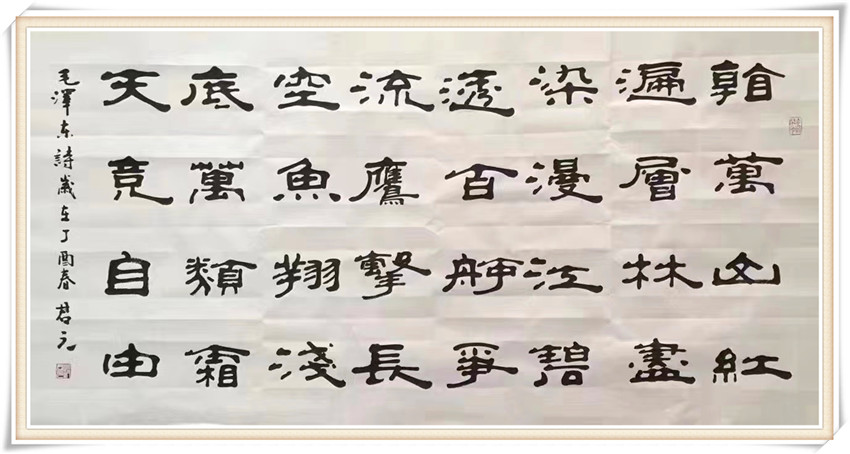 看萬山紅
遍層林盡
染漫江碧
透百舸爭
流鷹擊長
空魚翔淺
底萬類霜
天竞自由
毛澤东詩歲在丁酉春